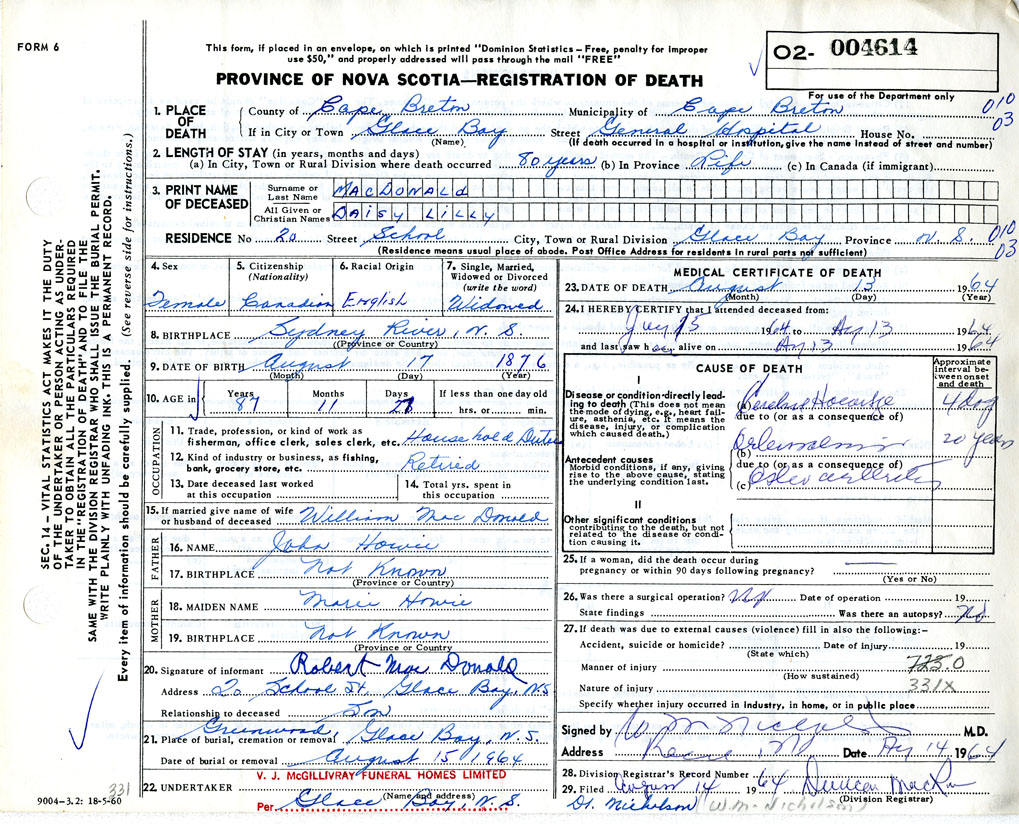 FORM 6
This form, if placed in an envelope, on which is printed "Dominion Statistics – Free, penalty for improper
use $50," and properly addressed will pass through the mail "FREE"
O2- 004614
PROVINCE OF NOVA SCOTIA—REGISTRATION OF DEATH
For use of the Department only
1. PLACE OF DEATH County of Cape Breton Municipality of Cape Breton 010
If in City or Town Glace Bay Street General Hospital House No. 03
(Name) (If death occurred in a hospital or institution, give the name instead of street and number)
2. LENGTH OF STAY (in years, months and days)
(a) In City, Town or Rural Division where death occurred 80 years (b) In Province Life (c) In Canada (if immigrant)
3. PRINT NAME OF DECEASED Surname or Last Name MACDONALD
All Given or Christian Names DAISY LILLY
RESIDENCE No 20 Street School City, Town or Rural Division Glace Bay Province N.S. 010
(Residence means usual place of abode. Post Office Address for residents in rural parts not sufficient) 03
4. Sex 5. Citizenship (Nationality) 6. Racial Origin 7. Single, Married, Widowed or Divorced (write the word)
Female Canadian English Widowed
8. BIRTHPLACE Sydney River, N.S.
(Province or Country)
9. DATE OF BIRTH August 17 1876
(Month) (Day) (Year)
10. AGE in Years Months Days If less than one day old
87 11 28 hrs. or min.
OCCUPATION
11. Trade, profession, or kind of work as
fisherman, office clerk, sales clerk, etc. Household Duties
12. Kind of industry or business, as fishing,
bank, grocery store, etc. Retired
13. Date deceased last worked at this occupation 14. Total yrs. spent in this occupation
15. If married give name of wife
or husband of deceased William Mac Donald
FATHER
16. NAME John Howie
17. BIRTHPLACE Not Known
(Province or Country)
MOTHER
18. MAIDEN NAME Marie Howie
19. BIRTHPLACE Not Known
(Province or Country)
20. Signature of informant Robert Mac Donald
Address 20 School St. Glace Bay, N.S
Relationship to deceased Son
21. Place of burial, cremation or removal Greenwood, Glace Bay, N.S.
Date of burial or removal August 15 1964
V. J. McGILLIVRAY FUNERAL HOMES LIMITED
22. UNDERTAKER (Name and address)
Per Glace Bay N.S.
331
9004-3.2: 18-5-60
MEDICAL CERTIFICATE OF DEATH
23. DATE OF DEATH August 13 1964
(Month) (Day) (Year)
24. I HEREBY CERTIFY that I attended deceased from:
15 1964 to Aug 13 1964
and last saw her alive on Aug 13 1964
CAUSE OF DEATH
Approximate interval between onset and death
I
Disease or condition directly leading to death (This does not mean
the mode of dying, e.g., heart failure, asthenia, etc. It means the
disease, injury, or complication
which caused death.)
(a) 4 day
due to (or as a consequence of)
(b) 20 years
Antecedent causes
Morbid conditions, if any, giving
rise to the above cause, stating
the underlying condition last.
due to (or as a consequence of)
(c)
II
Other significant conditions
contributing to the death, but not
related to the disease or condition causing it.
25. If a woman, did the death occur during
pregnancy or within 90 days following pregnancy?
(Yes or No)
26. Was there a surgical operation? No Date of operation 19
State findings Was there an autopsy? No
27. If death was due to external causes (violence) fill in also the following:–
Accident, suicide or homicide? Date of injury 19
(State which)
Manner of injury 725.0
(How sustained)
Nature of injury 331X
Specify whether injury occurred in Industry, in home, or in public place
Signed by M.D.
Address Date Aug 14 1964
28. Division Registrar's Record Number
29. Filed August 14 1964
(Division Registrar)
Dr. Nicholson (W.M. Nicholson)
SEC. 14 – VITAL STATISTICS ACT MAKES IT THE DUTY
OF THE UNDERTAKER OR PERSON ACTING AS UNDERTAKER
TO OBTAIN ALL THE PARTICULARS REQUIRED
IN THE "REGISTRATION OF DEATH" AND TO FILE THE
SAME WITH THE DIVISION REGISTRAR WHO SHALL ISSUE THE BURIAL PERMIT.
WRITE PLAINLY WITH UNFADING INK. THIS IS A PERMANENT RECORD.
Every item of information should be carefully supplied. (See reverse side for instructions.)